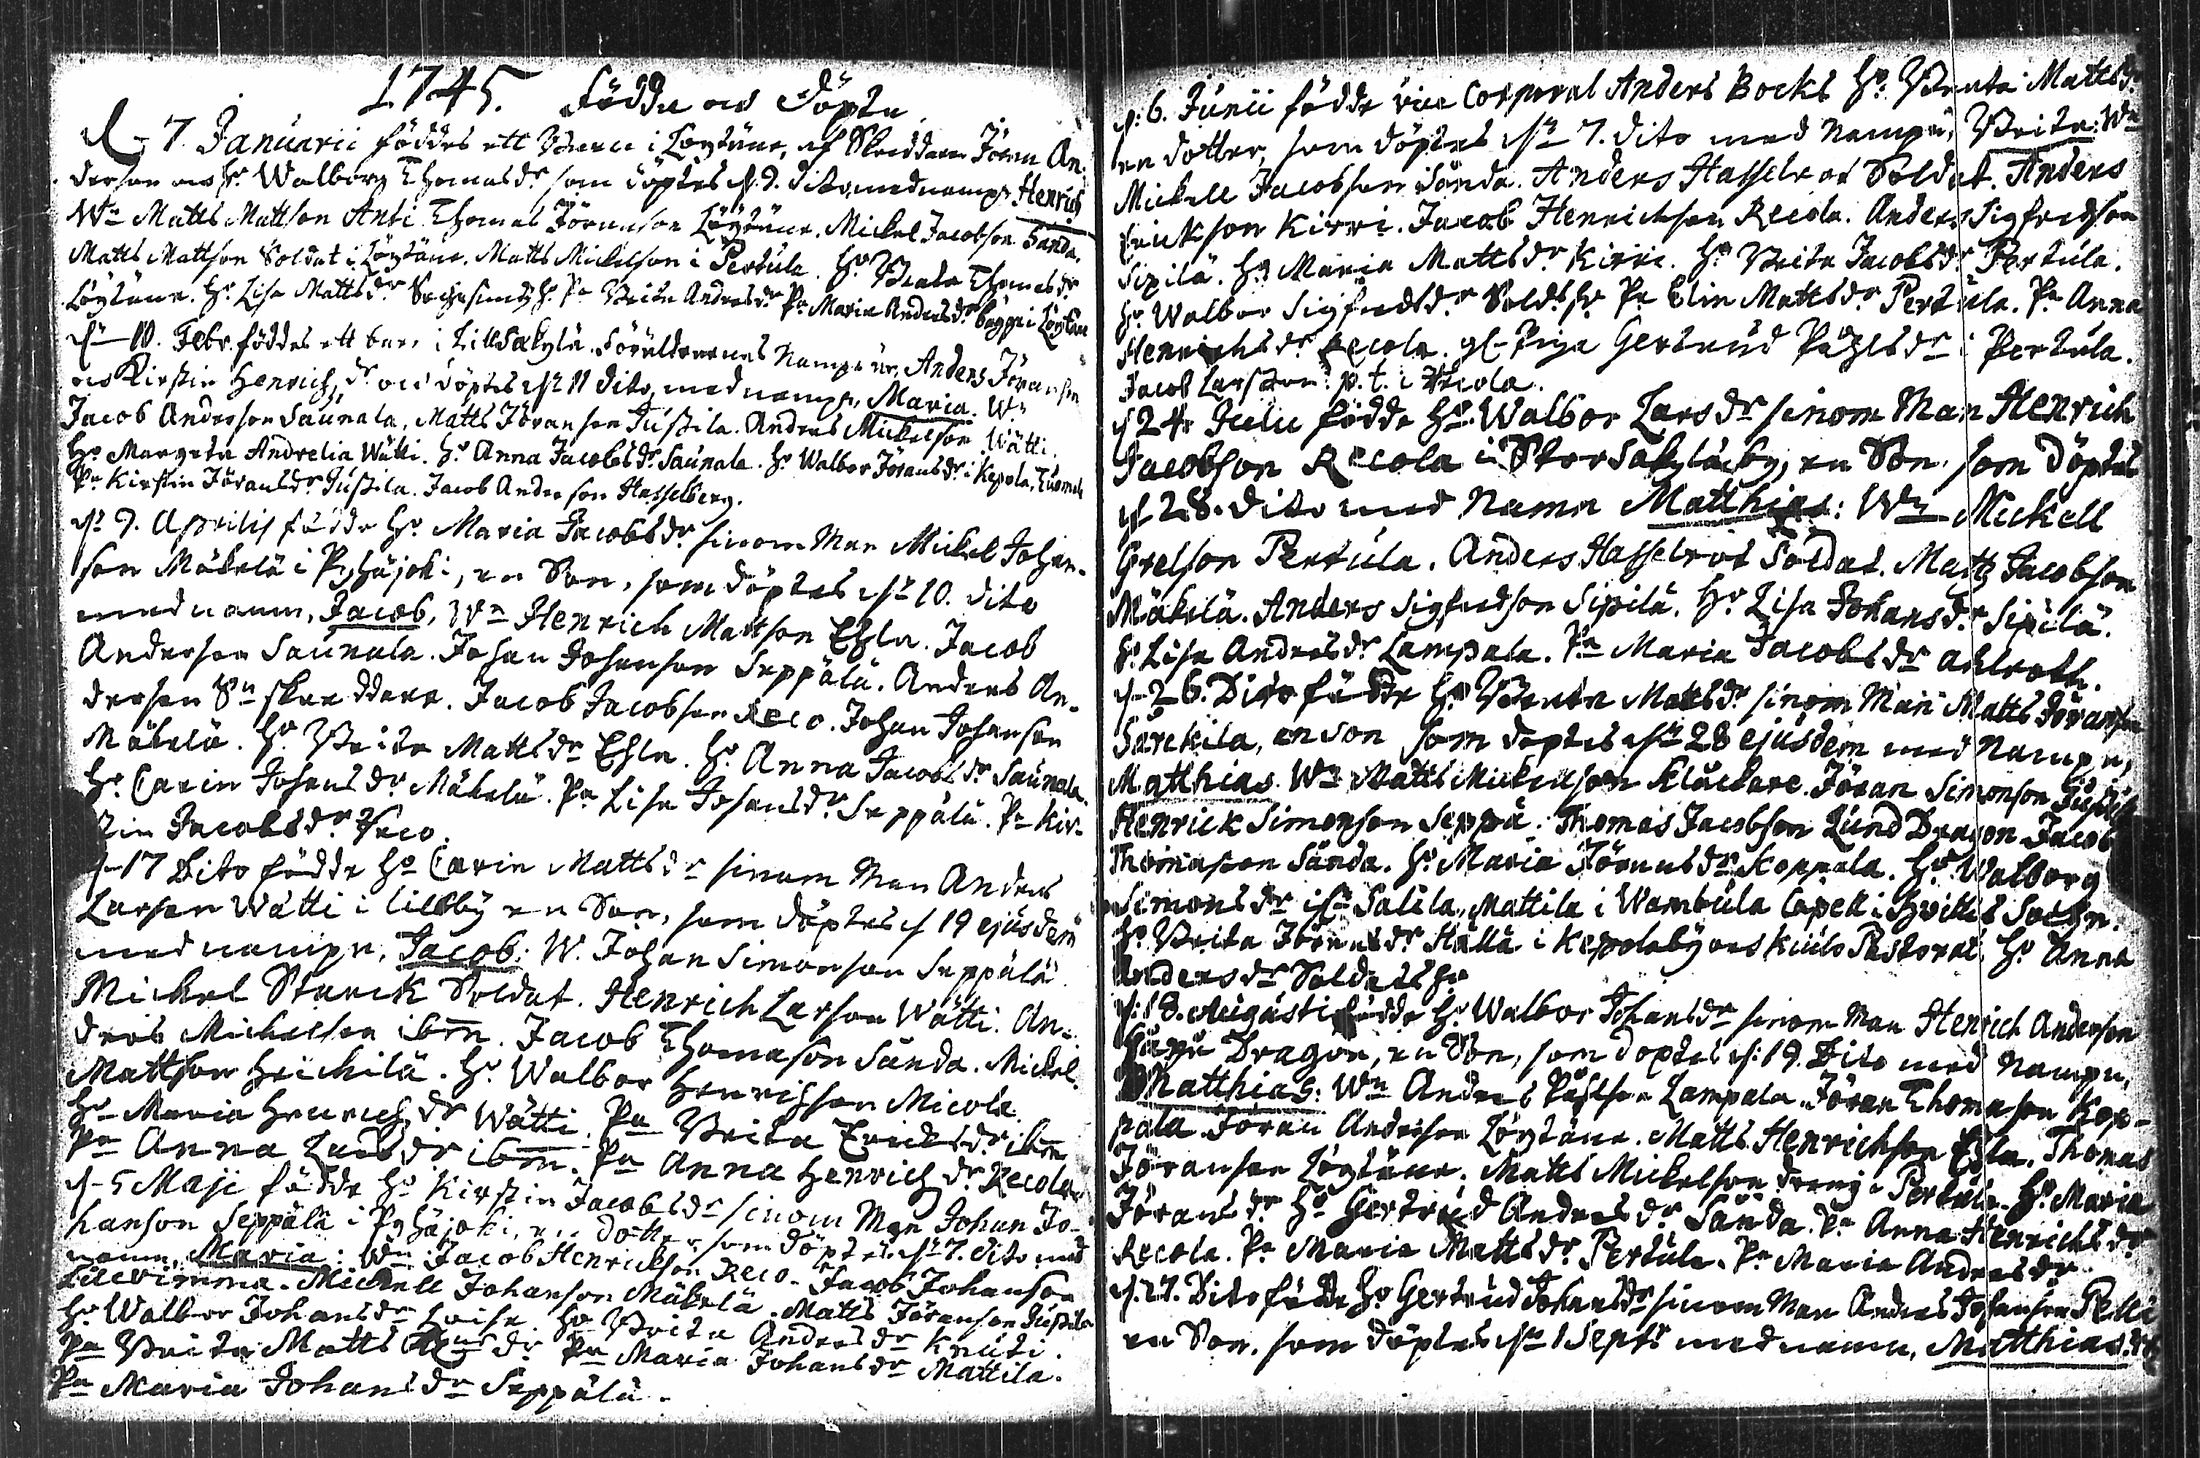 1745. Födde och Döpte
d. 7. Januarii föddes ett barn i Löytäne, af Skräddaren Jöran An-
derson och h. Walborg Thomasdr som döptes d. 9. dito, med nampn Henrich
Wn Matts Mattson Anti. Thomas Göranson Löytäne. Mickel Jacobson Sanda.
Matts Mattson Soldat i Löytäne. Matts Mickelson i Pertula. Hu Beata Thomasdr
Löytäne. Hu Lisa Mattsdr Pa Brita Andersdr Pa Maria Andersdr bägge i Löytäne
dn 10. Febr. föddes ett barn i Lillsäkylä. Föräldrarnes Nampn är, Anders Jöranson
och Kirstin Henrichsdr och döptes dn 11 dito, med nampn, Maria. Wn
Jacob Anderson Saunala, Matts Jöranson Jussila. Anders Mickelson Wätti.
Hu Margeta Andrelia Wätti. Hu Anna Jacobsdr Saunala. Hu Walbor Jöransdr i Kepola,
Pa Kirstin Jöransdr Jussila. Jacob Anderson Hasselberg.
dn 9. Aprilis födde Hu Maria Jacobsdr sinom Man Mickel Johan-
son Mäkelä i Pyhäjoki, en Son, som döptes dn 10. dito
med namn, Jacob, Wn Henrich Mattson Eßla. Jacob
Anderson Saunala. Johan Johanson Seppälä. Anders An-
derson Sn skräddare. Jacob Jacobson Reco. Johan Johanson
Mäkelä. Hu Brita Mattsdr Eßla. Hu Anna Jacobsdr Saunala.
Hu Carin Johansdr Mäkelä. Pa Lisa Johansdr Seppälä. Pa Kir-
stin Jacobsdr Reco.
d. 17 Dito födde Hu Carin Mattsdr sinom Man Anders
Larson Wätti i Lillby en Son, som döptes d 19 ejusdem
med nampn, Jacob: W. Johan Simonson Seppälä
Mickel Starck Soldat. Henrich Larson Wätti. An-
ders Mickelson ibm. Jacob Thomason Sanda. Mickel
Mattson Heickilä. Hu Walbor Henrichson Micola
Hu Maria Henrichsdr Wätti. Pa Brita Ericksdr ibm
Pa Anna Larsdr ibm. Pa Anna Henrichsdr Recola
d. 5 Maji födde Hu Kirstin Jacobsdr sinom Man Johan Jo-
hanson Seppälä i Pyhäjoki, en Dotter som döptes dn 7. dito med
namn, Maria: Wn Jacob Henrickson Reco. Jacob Johanson
Mickell Johanson Mäkelä. Matts Jöranson Jussila
Hu Walbor Johansdr Hu Brita Andersdr Knuti.
Pa Brita Matts dr Pa Maria Johansdr Mattila.
Pa Maria Johansdr Seppälä.
d. 6. Junii födde vice Corporal Anders Bocks Hu Beata Mattsdr
en dotter, som döptes dn 7. dito med Nampn, Brita: Wn
Mickell Jacobson Sanda. Anders Hasselrot Soldat. Anders
Erickson Kirri. Jacob Henrichson Recola. Anders Sigfredson
Sipilä. Hu Maria Mattsdr Kirri. Hu Brita Jacobsdr Pertula.
Hu Walbor Sigfredsdr Pa Elin Mattsdr Pertula. Pa Anna
Henrichsdr Recola. Piga Gertrud Påhlsdr i Pertula.
Jacob Larsson p. t. i
d 24. Julii födde Hu Walbor Larsdr sinom Man Henrich
Jacobson Recola i Storsäkyläby, en Son, som döptes
d 28. dito med Namn Matthias: Wn Mickell
Grelson Pertula. Anders Hasselrot Soldat. Matts Jacobson
Mäkelä. Anders Sigfredson Sipilä. Hu Lisa Johansdr Sipilä.
Hu Lisa Andersdr Lampala. Pa Maria Jacobsdr Ahlroth.
d. 26. Dito födde Hu Beata Mattsdr sinom Man Matts Jöranson
Särckilä, en Son som döptes dn 28 ejusdem med Nampn,
Matthias. Wn Matts Mickelson Klåckare. Jöran Simonson Jussila
Henrick Simonson Seppä. Thomas Jacobson Lund Dragon Jacob
Thomason Sanda. Hu Maria Jöransdr Koppala. Hu Walborg
Simonsdr Mattila i Wambula Capell i Hvittis Sochn.
Hu Brita Jöransdr i Kepolaby och Kiulo Pastorat. Hu Anna
Andersdr Soldatshu
d. 18. Augusti födde Hu Walbor Johansdr sinom Man Henrich Anderson
Dragon, en Son, som döptes d. 19. Dito med Nampn,
Matthias: Wn Anders Påhlson Lampala. Jöran Thomason Kop-
pala Jöran Anderson Löytäne. Matts Henrichson Eßla. Thomas
Jöranson Löytäne. Matts Mickelson dräng Pertula. Hu Maria
Jöransdr Hu Gertrud Andersdr Sanda. Pa Anna Henrichsdr
Recola. Pa Maria Mattsdr Pertula. Pa Maria Andersdr
d. 27. Dito födde Hu Gertrud Johansdr sinom Man Anders Johanson Pelli
en Son, som döptes dn 1 Septr med namn, Matthias. Wn